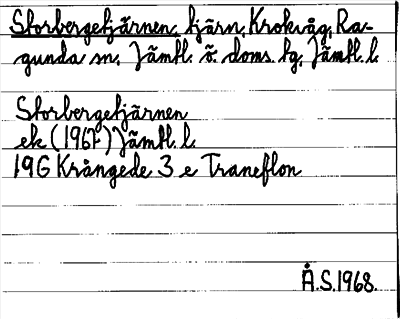 Storbergetjärnen, tjärn, Krokvåg, Ra-
gunda sn, Jämtl. ö. doms. tg, Jämtl. l.
Storbergetjärnen
ek (1967) Jämtl. l.
19G Krångede 3 e Traneflon
Å.S.1968.